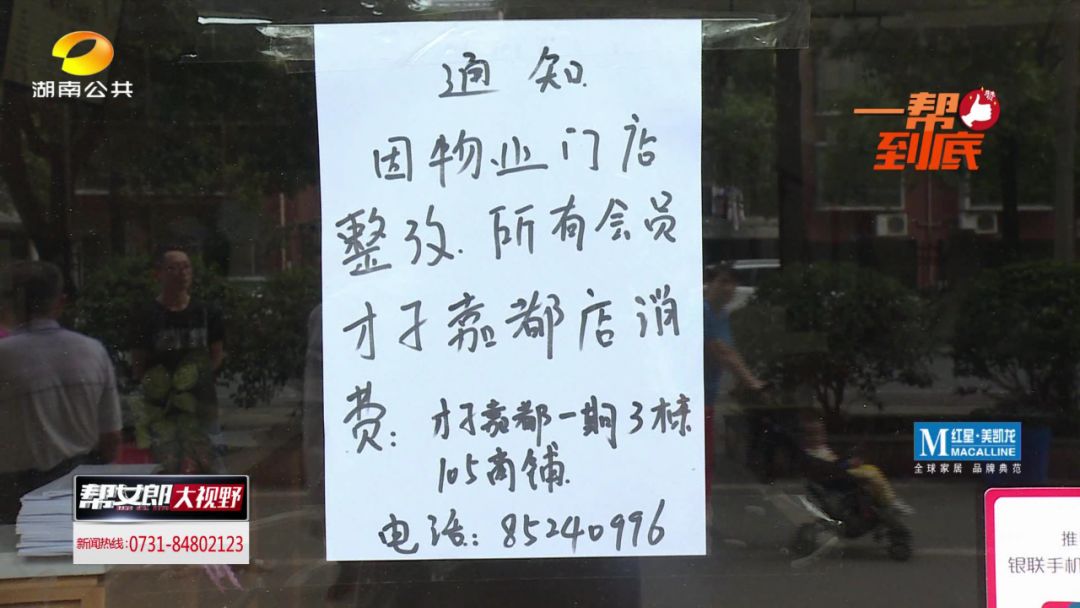 湖南公共
一帮到底
赞
通知
因物业门店
整改.所有会员
才子嘉都店消
费:才子嘉都一期3栋
105商铺.
电话:85240996
M 红星·美凯龙
MACALLINE
全球家居 品牌典范
帮女郎大视野
新闻热线:0731-84802123
推
银联手机